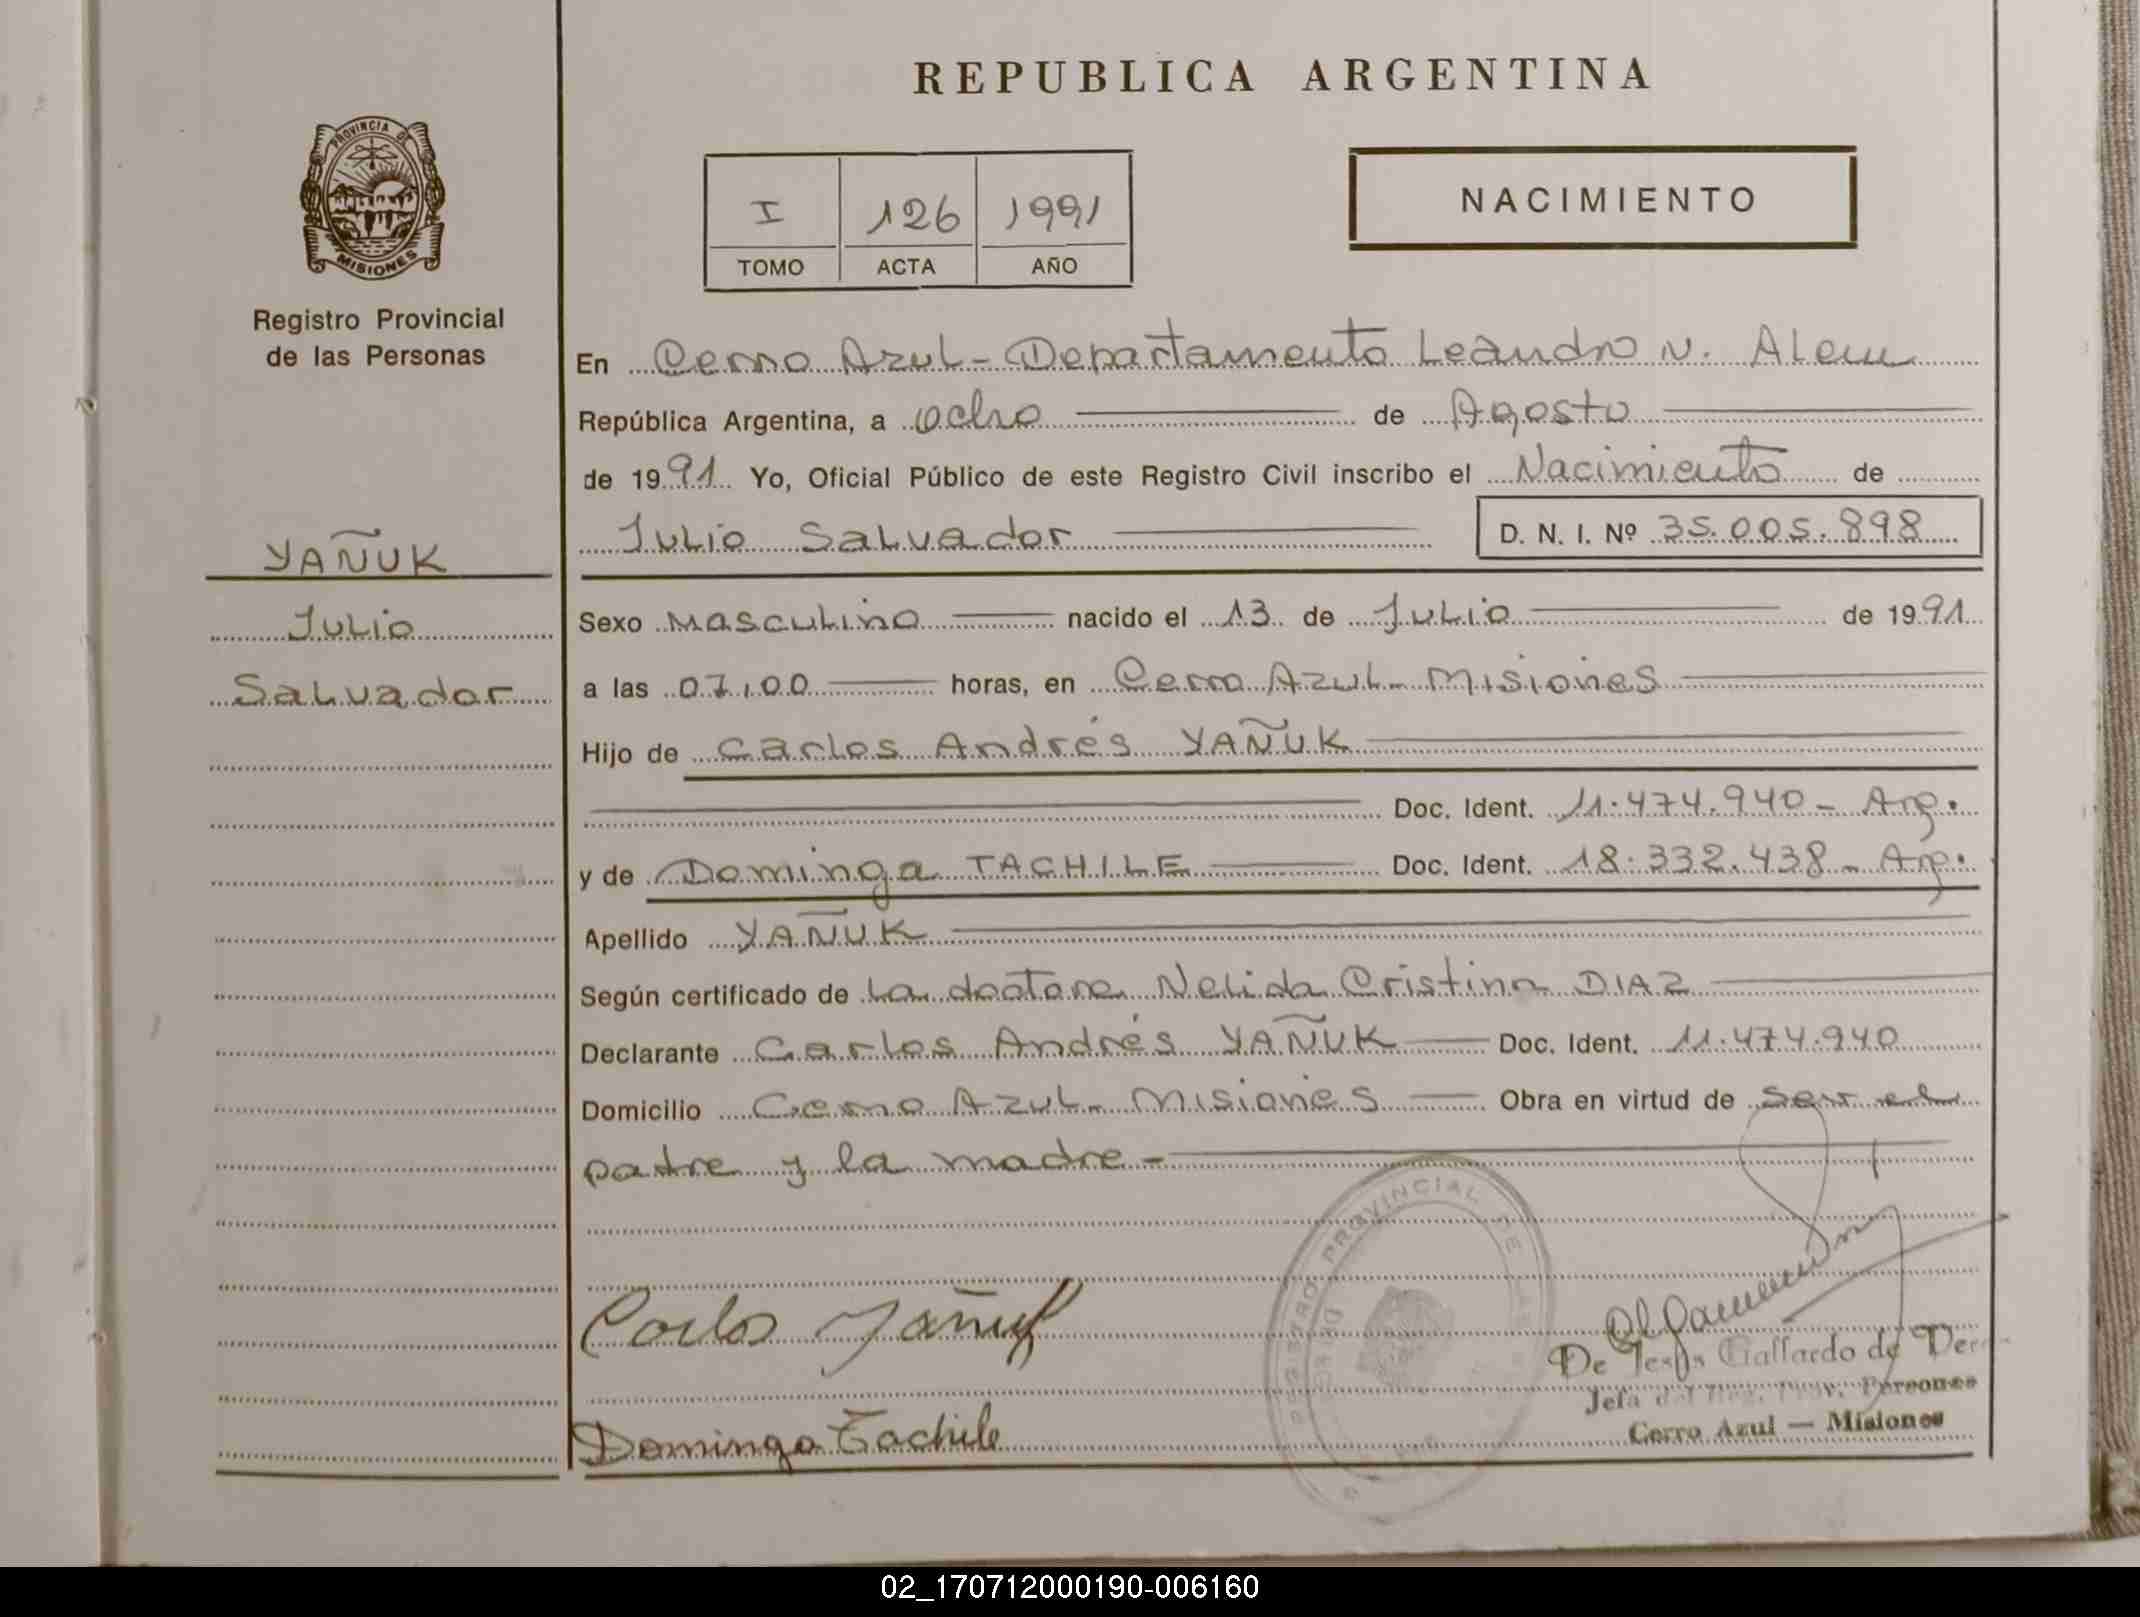 REPUBLICA ARGENTINA
PROVINCIA DE
MISIONES
Registro Provincial
de las Personas
I 126 1991
TOMO ACTA AÑO
NACIMIENTO
En Cerro Azul - Departamento Leandro N. Alem
República Argentina, a ocho de Agosto
de 1991 Yo, Oficial Público de este Registro Civil inscribo el Nacimiento de
Julio Salvador D. N. I. Nº 35.005.898
YAÑUK
Julio
Salvador
Sexo Masculino nacido el 13 de Julio de 1991
a las 07,00 horas, en Cerro Azul - Misiones
Hijo de Carlos Andrés YAÑUK
Doc. Ident. 11.474.940 - Arg.
y de Dominga TACHILE Doc. Ident. 18.332.438 - Arg.
Apellido YAÑUK
Según certificado de la doctora Nelida Cristina DIAZ
Declarante Carlos Andrés YAÑUK Doc. Ident. 11.474.940
Domicilio Cerro Azul - Misiones Obra en virtud de ser el
padre y la madre -
REGISTRO PROVINCIAL DE LAS
Carlos Yañuk
De Jesús Gallardo de
Jefa del Reg. Prov. Personas
Cerro Azul — Misiones
Dominga Tachile
02_170712000190-006160